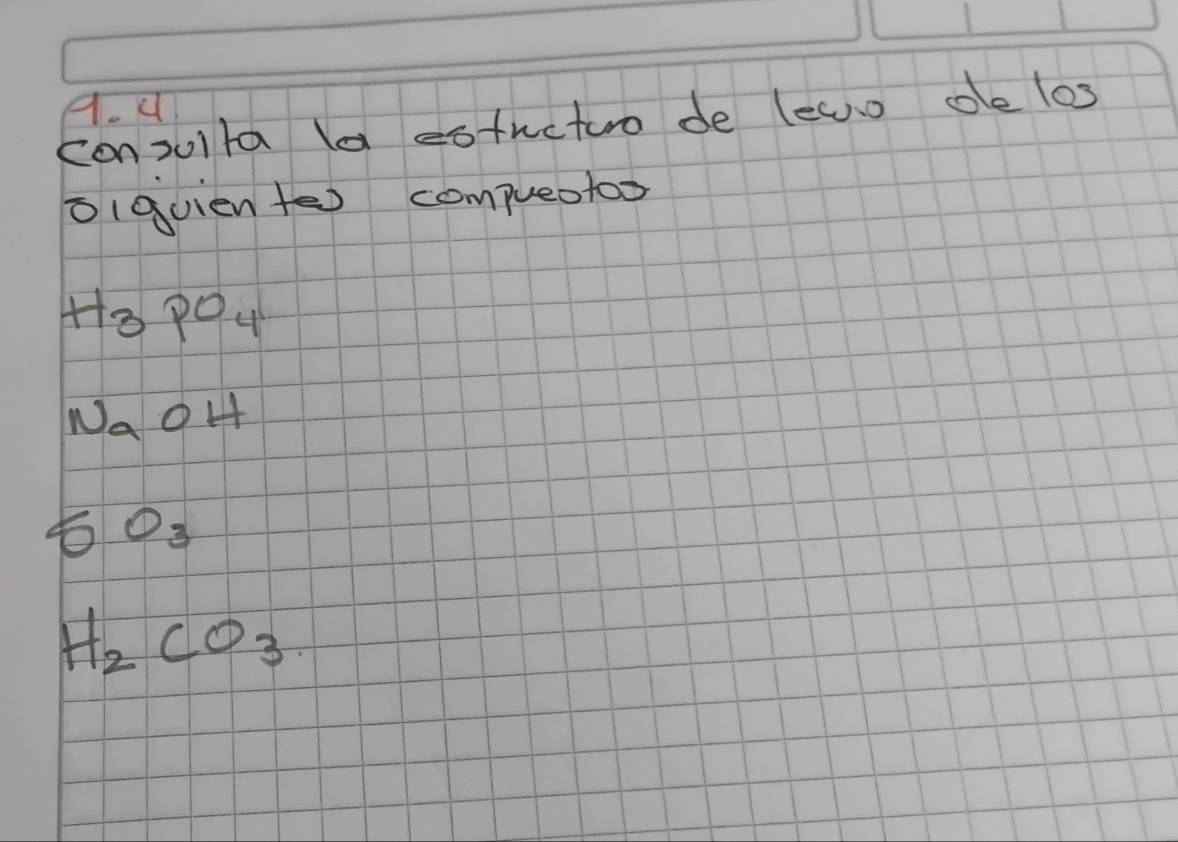 1.4
consulta la estructura de lewis de los
siguientes compuestos
H3 PO4
Na OH
SO3
H2 CO3.